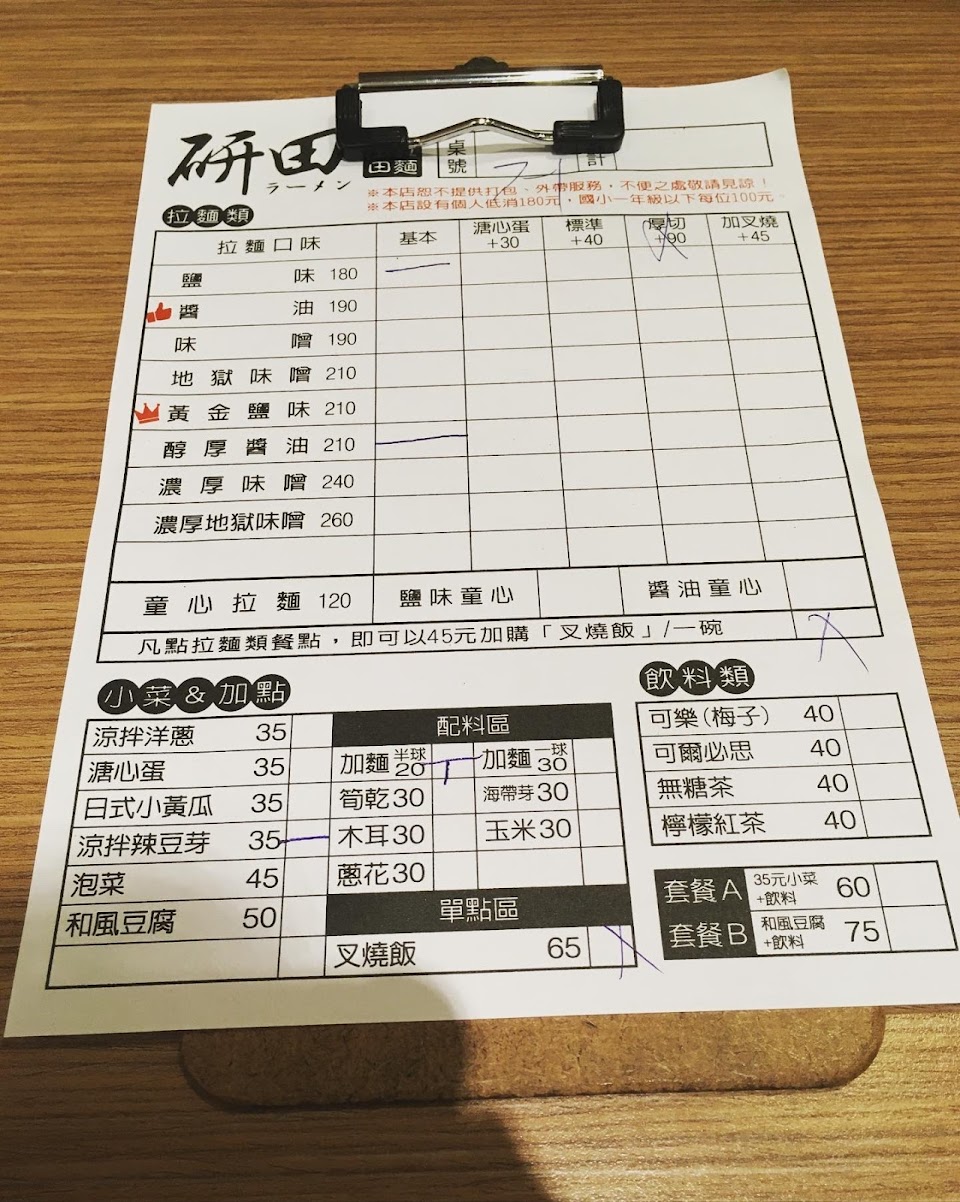 研田
ラーメン
田麵
桌號
計
※本店恕不提供打包、外帶服務，不便之處敬請見諒！
※本店設有個人低消180元，國小一年級以下每位100元。
拉麵類
拉麵口味 基本 溏心蛋+30 標準+40 厚切+90 加叉燒+45
鹽味 180
醬油 190
味噌 190
地獄味噌 210
黃金鹽味 210
醇厚醬油 210
濃厚味噌 240
濃厚地獄味噌 260
童心拉麵 120 鹽味童心 醬油童心
凡點拉麵類餐點，即可以45元加購「叉燒飯」/一碗
小菜&加點
涼拌洋蔥 35
溏心蛋 35
日式小黃瓜 35
涼拌辣豆芽 35
泡菜 45
和風豆腐 50
配料區
加麵半球20 加麵一球30
筍乾30 海帶芽30
木耳30 玉米30
蔥花30
單點區
叉燒飯 65
飲料類
可樂(梅子) 40
可爾必思 40
無糖茶 40
檸檬紅茶 40
套餐A 35元小菜+飲料 60
套餐B 和風豆腐+飲料 75